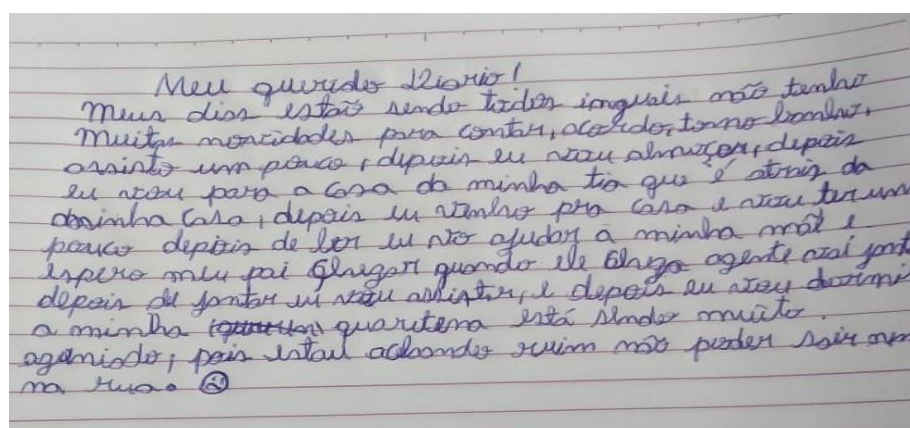 Meu querido Diario!
Meus dias estão sendo todos inguais não tenho
Muitas noricidades para contar, acordo, tomo banho,
assisto um pouco, depois eu vou almoçar, depois
eu vou para a casa da minha tia que é atrais da
minha casa, depois eu venho pra casa e vou ler um
pouco depois de ler eu vio ajudar a minha mãe e
espero meu pai chegar quando ele chega agente vai janta
depois de jantar eu vou assistir, e depois eu vou dormi
a minha quaritena está sendo muito
agoniado, pois estou achando ruim não poder sair
na rua.